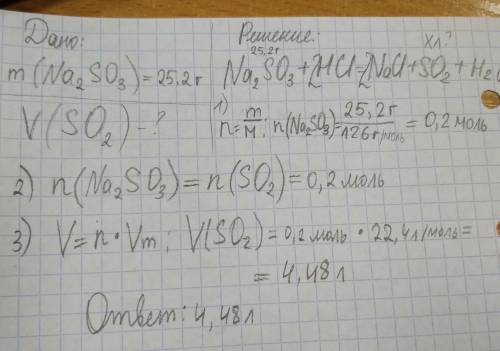 Дано:
Решение:
25,2г хл?
m(Na₂SO₃)=25,2г
Na₂SO₃+2HCl=2NaCl+SO₂+H₂O
V(SO₂)-?
1) n=m/M; n(Na₂SO₃)=25,2г/126г/моль=0,2моль
2) n(Na₂SO₃)=n(SO₂)=0,2моль
3) V=n·Vm; V(SO₂)=0,2моль·22,4л/моль=
=4,48л
Ответ: 4,48л